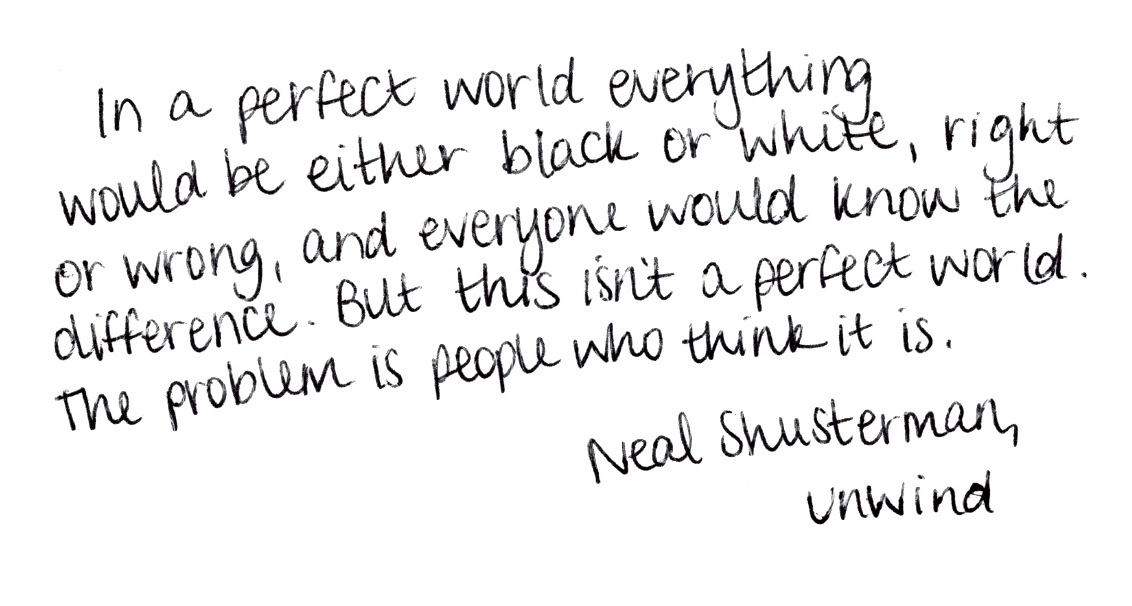 In a perfect world everything
would be either black or white, right
or wrong, and everyone would know the
difference. But this isn't a perfect world.
The problem is people who think it is.
Neal Shusterman,
unwind